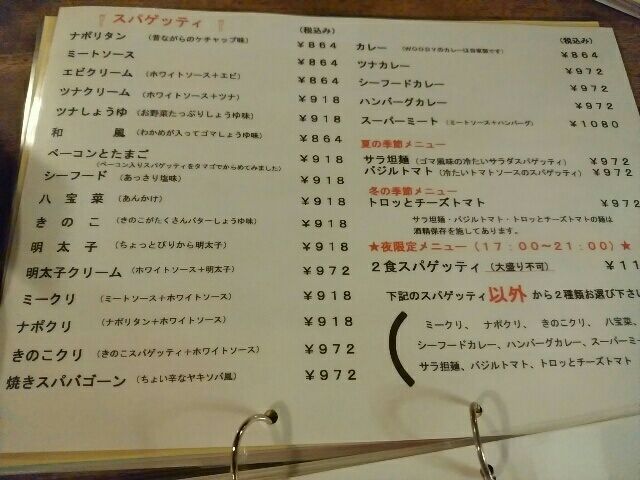 スパゲッティ
(税込み)
ナポリタン (昔ながらのケチャップ味) ¥864
ミートソース ¥864
エビクリーム (ホワイトソース+エビ) ¥864
ツナクリーム (ホワイトソース+ツナ) ¥918
ツナしょうゆ (お野菜たっぷりしょうゆ味) ¥918
和 風 (わかめが入ってゴマしょうゆ味) ¥864
ベーコンとたまご ¥918
(ベーコン入りスパゲッティをタマゴでからめてみました)
シーフード (あっさり塩味) ¥918
八 宝 菜 (あんかけ) ¥918
き の こ (きのこがたくさんバターしょうゆ味) ¥918
明 太 子 (ちょっとぴりから明太子) ¥918
明太子クリーム (ホワイトソース+明太子) ¥972
ミークリ (ミートソース+ホワイトソース) ¥918
ナポクリ (ナポリタン+ホワイトソース) ¥918
きのこクリ (きのこスパゲッティ+ホワイトソース) ¥972
焼きスパバゴーン (ちょい辛なヤキソバ風) ¥972
(税込み)
カレー (WOODYのカレーは自家製です) ¥864
ツナカレー ¥972
シーフードカレー ¥972
ハンバーグカレー ¥972
スーパーミート (ミートソース+ハンバーグ) ¥1080
夏の季節メニュー
サラ坦麺 (ゴマ風味の冷たいサラダスパゲッティ) ¥972
バジルトマト (冷たいトマトソースのスパゲッティ) ¥972
冬の季節メニュー
トロッとチーズトマト ¥972
サラ坦麺・バジルトマト・トロッとチーズトマトの麺は
酒精保存を施してあります。
★夜限定メニュー(17:00~21:00)★
2食スパゲッティ (大盛り不可) ¥11
下記のスパゲッティ以外から2種類お選び下さい
ミークリ、 ナポクリ、 きのこクリ、 八宝菜、
シーフードカレー、ハンバーグカレー、スーパーミー
サラ坦麺、バジルトマト、トロッとチーズトマト